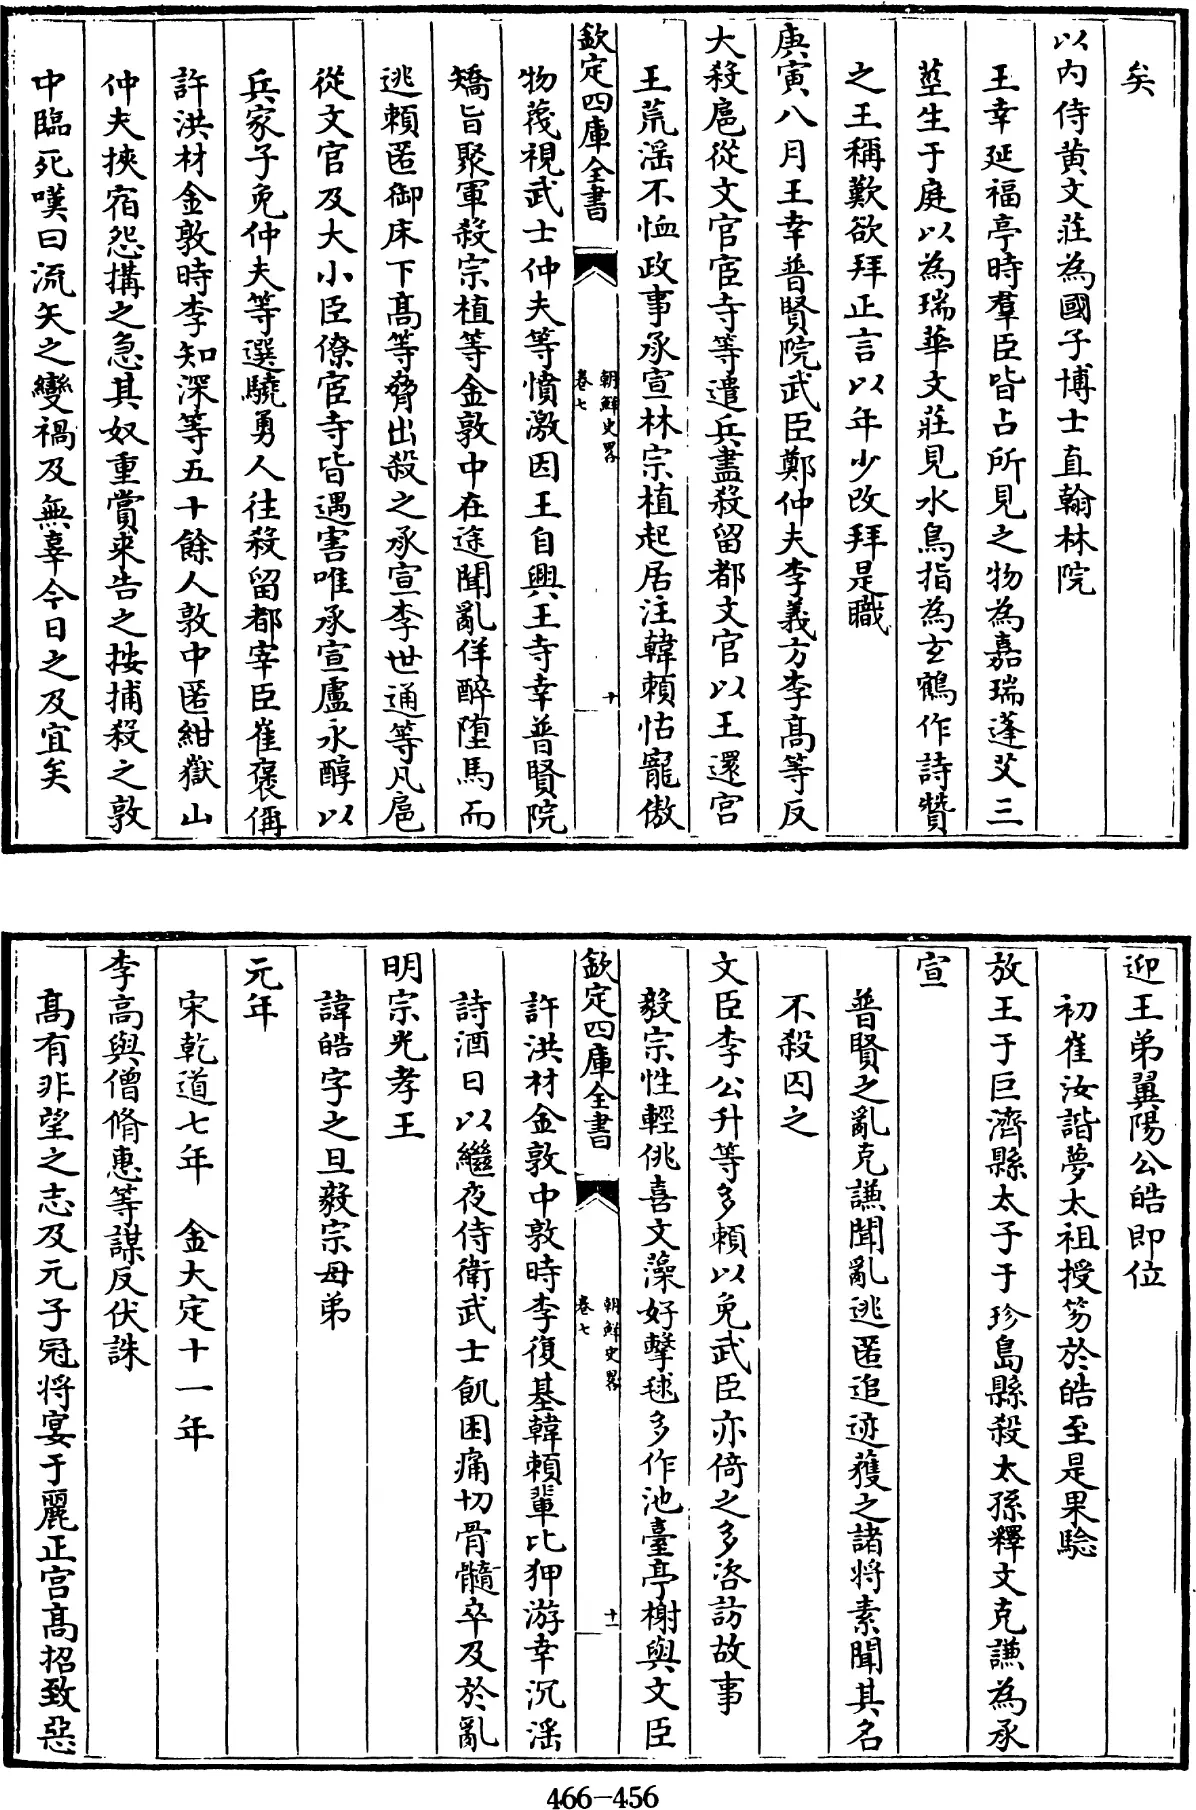 矣
以内侍黄文莊為國子博士直翰林院
王幸延福亭時羣臣皆占所見之物為嘉瑞蓬艾三
莖生于庭以為瑞華文莊見水鳥指為玄鶴作詩賛
之王稱歎欲拜正言以年少改拜是職
庚寅八月王幸普賢院武臣鄭仲夫李義方李髙等反
大殺扈從文官宦寺等遣兵盡殺留都文官以王還宫
王荒滛不恤政事承宣林宗植起居注韓頼怙寵傲
欽定四庫全書
朝鮮史畧
卷七
十
物蔑視武士仲夫等憤激因王自興王寺幸普賢院
矯旨聚軍殺宗植等金敦中在途聞亂佯醉墮馬而
逃頼匿御床下髙等脅出殺之承宣李世通等凡扈
從文官及大小臣僚宦寺皆遇害唯承宣盧永醇以
兵家子免仲夫等選驍勇人往殺留都宰臣崔褒偁
許洪材金敦時李知深等五十餘人敦中匿紺嶽山
仲夫挾宿怨搆之急其奴重賞来告之按捕殺之敦
中臨死嘆曰流矢之變禍及無辜今日之及宜矣
迎王弟翼陽公皓即位
初崔汝諧夢太祖授笏於皓至是果驗
放王于巨濟縣太子于珍島縣殺太孫釋文克謙為承
宣
普賢之亂克謙聞亂逃匿追迹獲之諸将素聞其名
不殺囚之
文臣李公升等多頼以免武臣亦倚之多咨訪故事
毅宗性輕佻喜文藻好擊毬多作池臺亭榭與文臣
欽定四庫全書
朝鮮史畧
卷七
十一
許洪材金敦中敦時李復基韓頼輩比狎游幸沉滛
詩酒日以繼夜侍衛武士飢困痛切骨髓卒及於亂
明宗光孝王
諱皓字之旦毅宗母弟
元年
宋乾道七年　金大定十一年
李高與僧脩惠等謀反伏誅
髙有非望之志及元子冠将宴于麗正宫髙招致惡
466—456